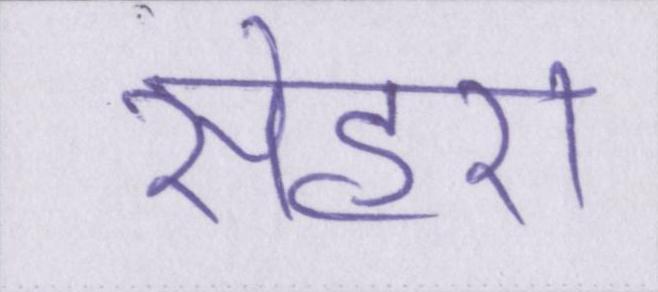 सेहरा